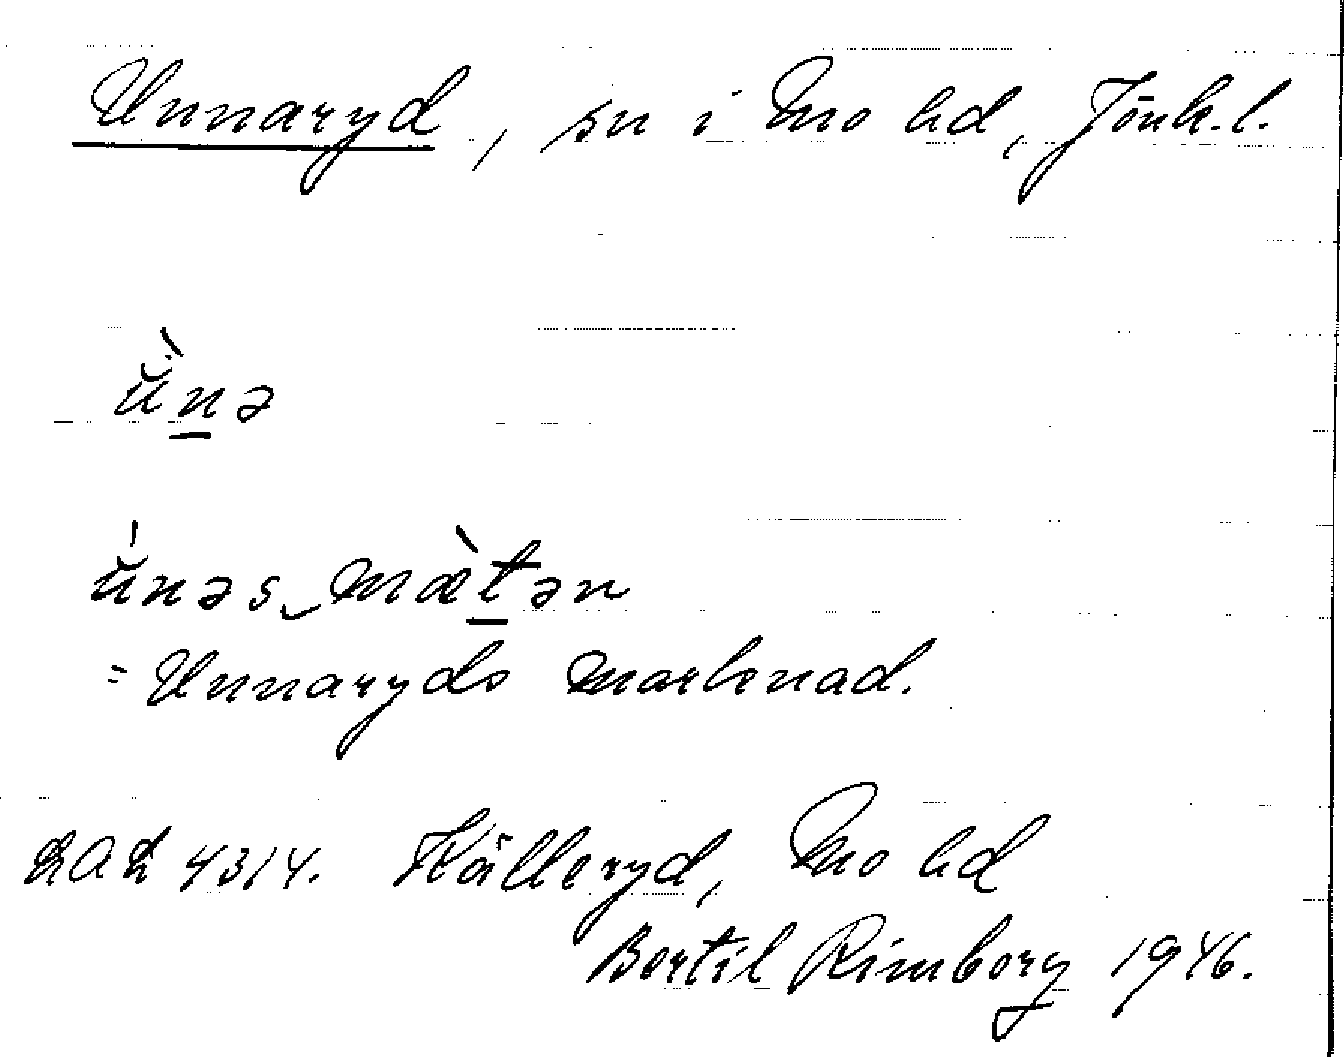 Unnaryd, sn i Mo hd, Jönk. l.
ŭ̀nə
ŭ́nəs‿mæ̀tən
= Unnaryds marknad.
LAL 4314. Källeryd, Mo hd
Bertil Rimborg 1946.